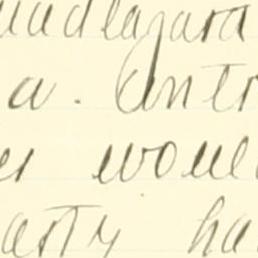 uadlajara
a. Antr
er would
arty ha